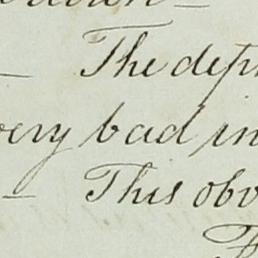 — The dep
very bad in
— This obv